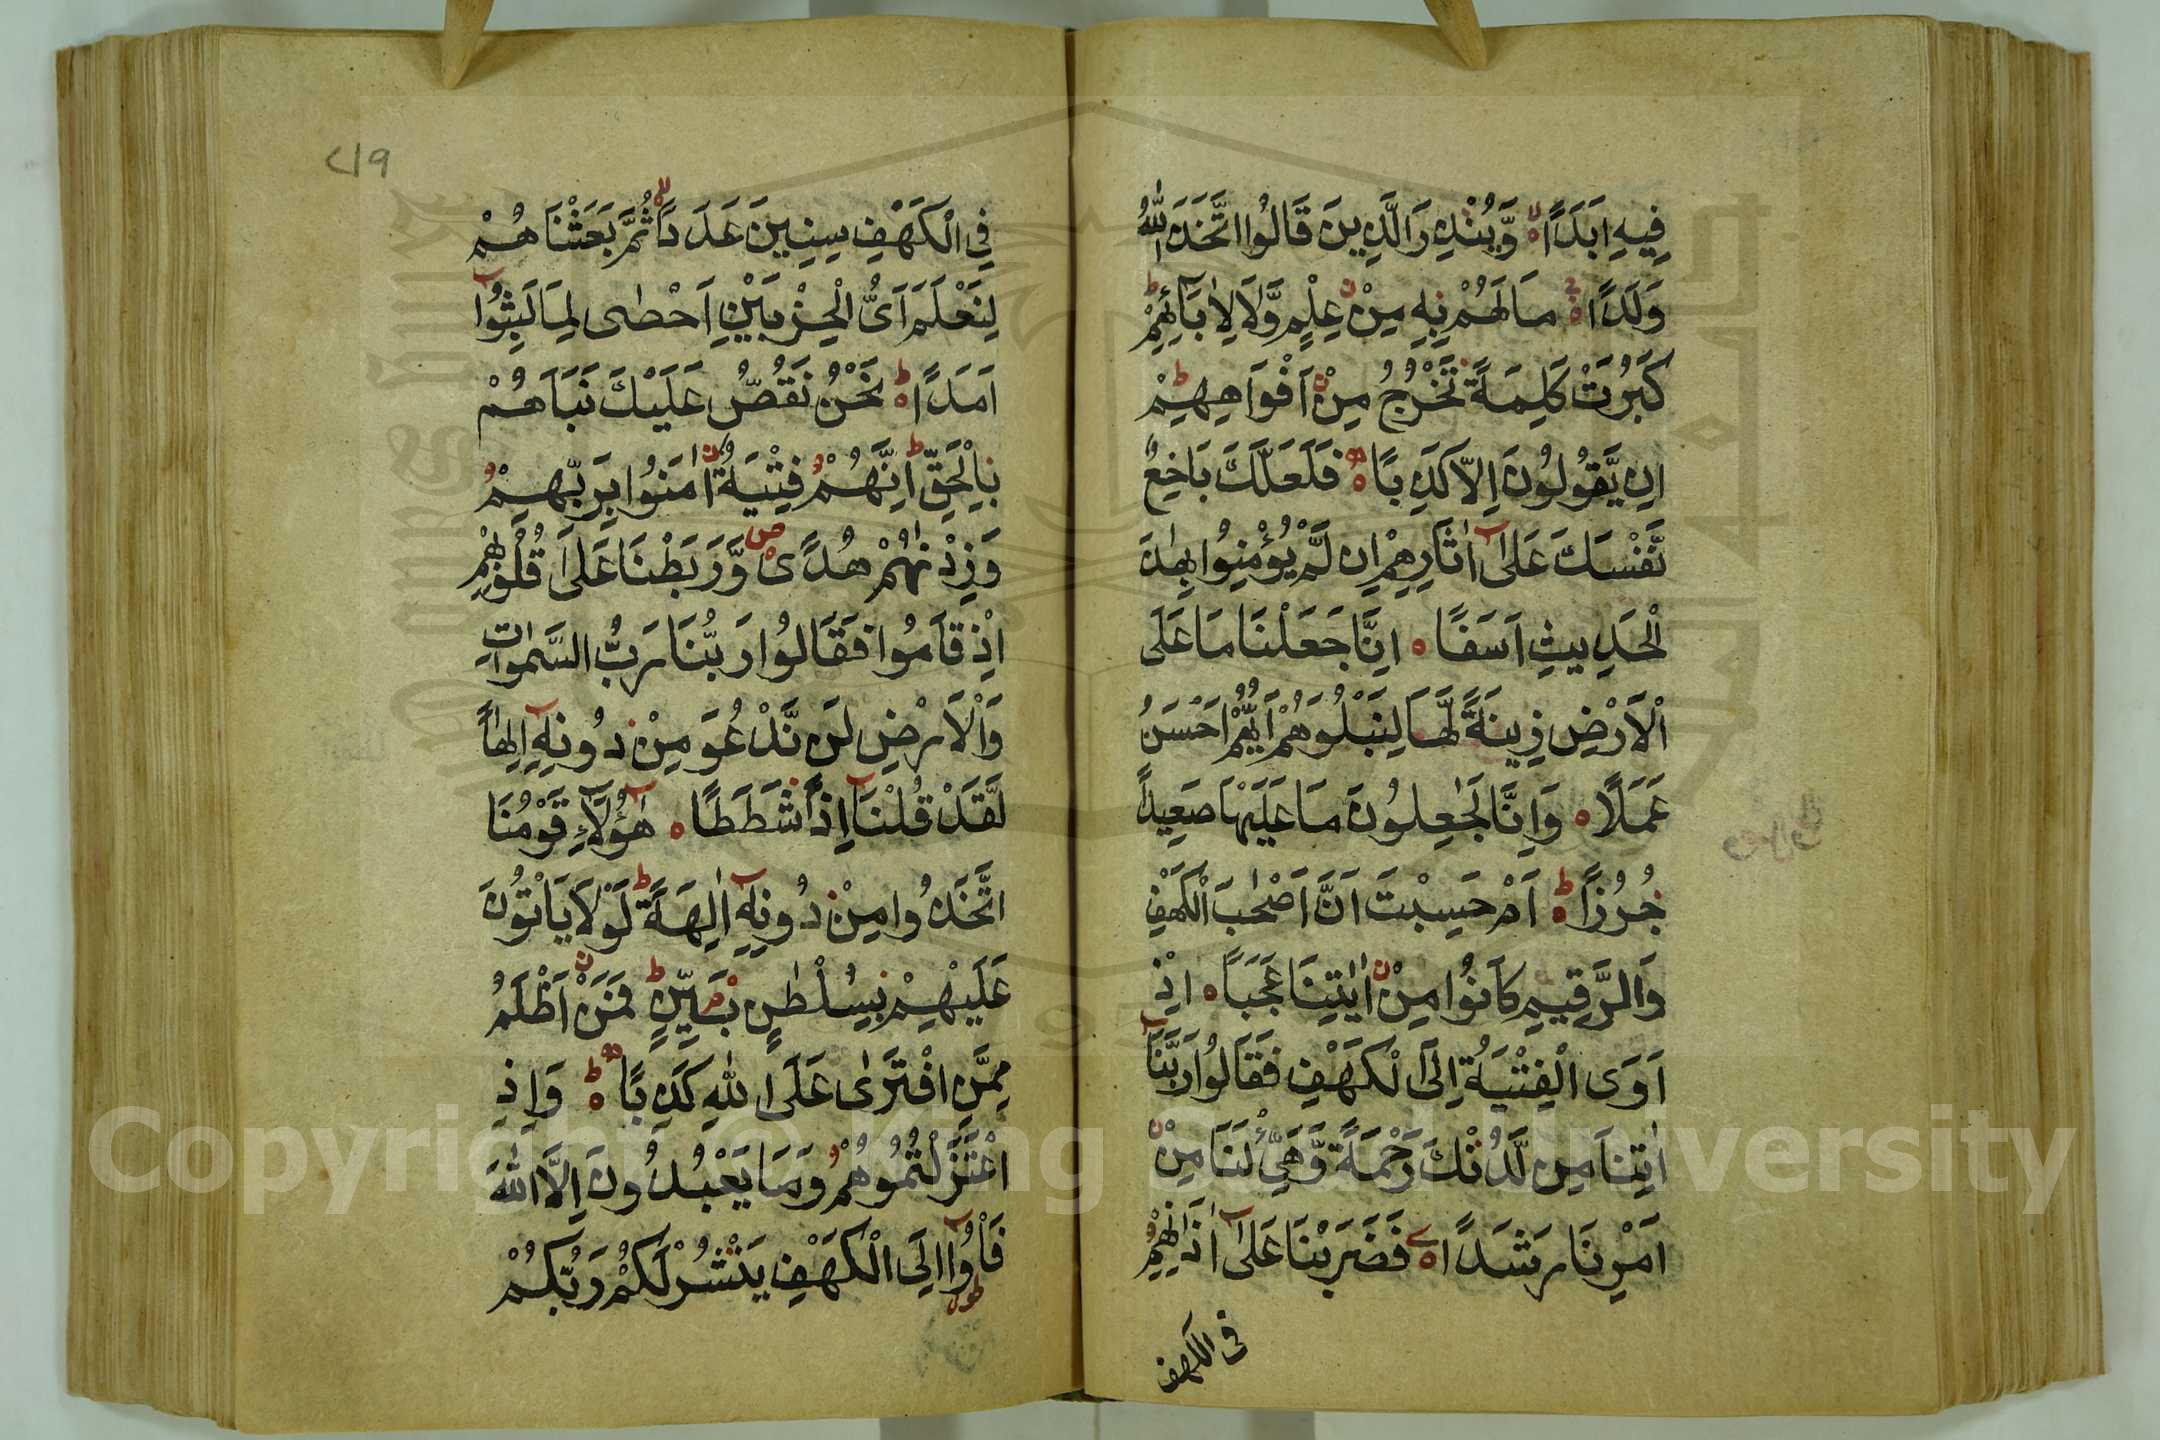 فِيهِ اَبَدًا ۙ وَّيُنْذِرَ الَّذِينَ قَالُوا اتَّخَذَ اللّٰهُ
وَلَدًا ۚ مَالَهُمْ بِهٖ مِنْ عِلْمٍ وَّلَا لِاٰبَآئِهِمْ ؕ
كَبُرَتْ كَلِمَةً تَخْرُجُ مِنْ اَفْوَاهِهِمْ ؕ
اِن يَّقُولُونَ اِلَّا كَذِبًا ۝ فَلَعَلَّكَ بَاخِعٌ
نَّفْسَكَ عَلٰٓى اٰثَارِهِمْ اِن لَّمْ يُؤْمِنُوا بِهٰذَ
الْحَدِيثِ اَسَفًا ۝ اِنَّا جَعَلْنَا مَا عَلَى
الْاَرْضِ زِينَةً لَّهَا لِنَبْلُوَهُمْ اَيُّهُمْ اَحْسَنُ
عَمَلًا ۝ وَاِنَّا لَجٰعِلُونَ مَا عَلَيْهَا صَعِيدًا
جُرُزًا ؕ اَمْ حَسِبْتَ اَنَّ اَصْحٰبَ الْكَهْفِ
وَالرَّقِيمِ كَانُوا مِنْ اٰيٰتِنَا عَجَبًا ۝ اِذْ
اَوَى الْفِتْيَةُ اِلَى الْكَهْفِ فَقَالُوا رَبَّنَآ
اٰتِنَا مِن لَّدُنْكَ رَحْمَةً وَّهَيِّئْ لَنَا مِنْ
اَمْرِنَا رَشَدًا ۝ فَضَرَبْنَا عَلٰٓى اٰذَانِهِمْ
فى الكهف
٢١٩
فِي الْكَهْفِ سِنِينَ عَدَدًا ۙ ثُمَّ بَعَثْنَاهُمْ
لِنَعْلَمَ اَىُّ الْحِزْبَيْنِ اَحْصٰى لِمَا لَبِثُوٓا
اَمَدًا ؕ نَحْنُ نَقُصُّ عَلَيْكَ نَبَاَهُمْ
بِالْحَقِّ ؕ اِنَّهُمْ فِتْيَةٌ اٰمَنُوا بِرَبِّهِمْ
وَزِدْنٰهُمْ هُدًى ۖ وَّرَبَطْنَا عَلَى قُلُوبِهِمْ
اِذْ قَامُوا فَقَالُوا رَبُّنَا رَبُّ السَّمٰوَاتِ
وَالْاَرْضِ لَن نَّدْعُوَ مِنْ دُونِهٖٓ اِلٰهًا
لَّقَدْ قُلْنَآ اِذًا شَطَطًا ۝ هٰٓؤُلَآءِ قَوْمُنَا
اتَّخَذُوا مِنْ دُونِهٖٓ اٰلِهَةً ؕ لَوْلَا يَاْتُونَ
عَلَيْهِمْ بِسُلْطٰنٍ بَيِّنٍ ؕ فَمَنْ اَظْلَمُ
مِمَّنِ افْتَرٰى عَلَى اللّٰهِ كَذِبًا ؕ وَاِذِ
اعْتَزَلْتُمُوهُمْ وَمَا يَعْبُدُونَ اِلَّا اللّٰهَ
فَاْوُٓا اِلَى الْكَهْفِ يَنْشُرْ لَكُمْ رَبُّكُمْ
Copyright © King Saud University